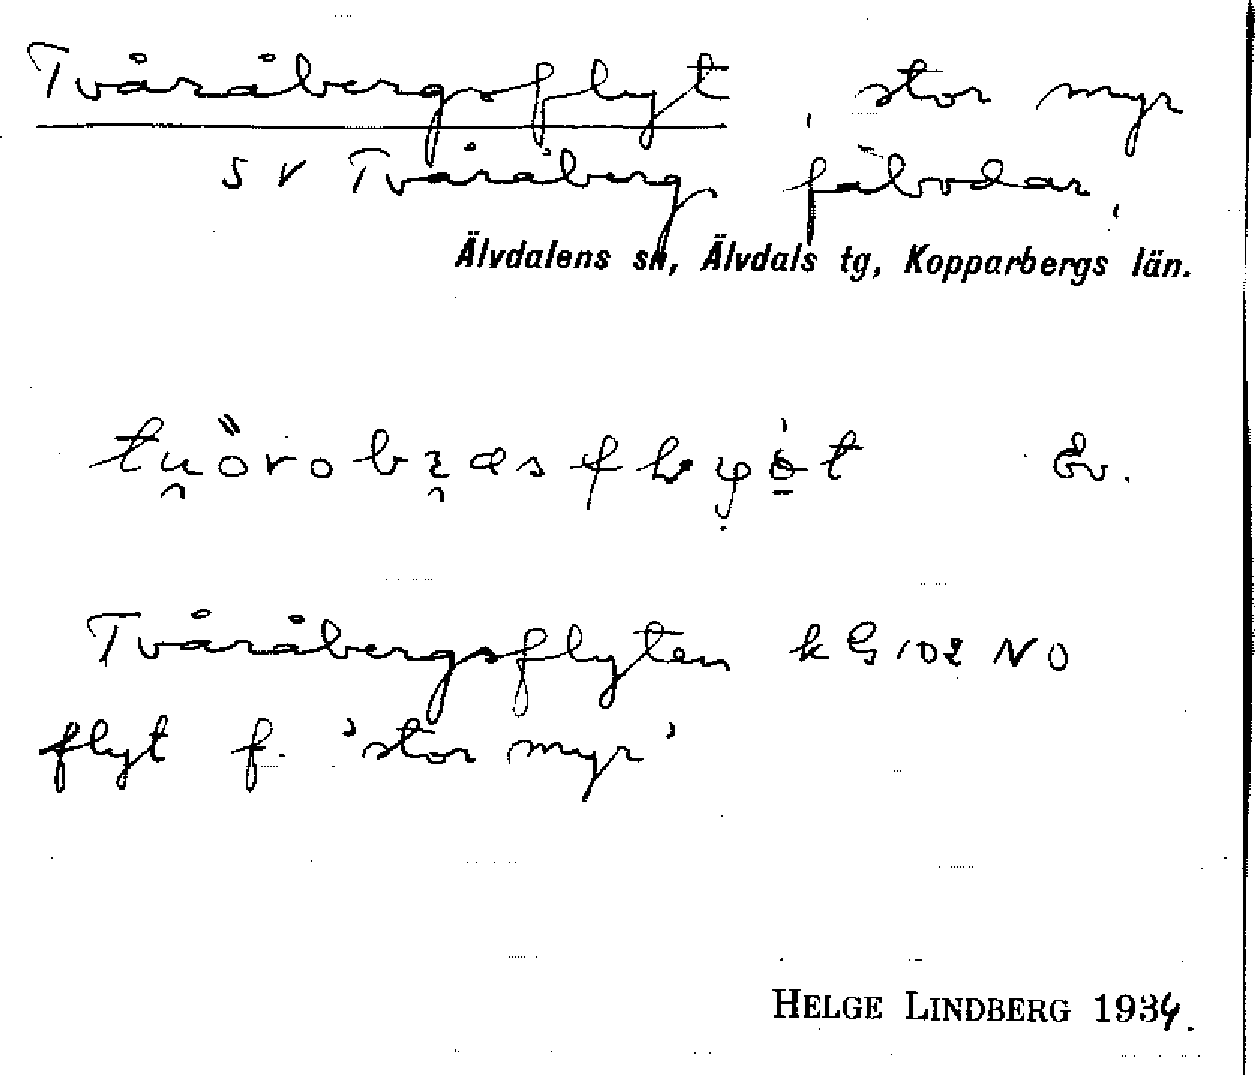 Tvåråbergsflyt, stor myr
SV Tvåråberg fäbodar,
Älvdalens sn, Älvdals tg, Kopparbergs län.
Äv.
Tvåråbergsflyten k G 102 NO
flyt f. 'stor myr'
HELGE LINDBERG 1934.